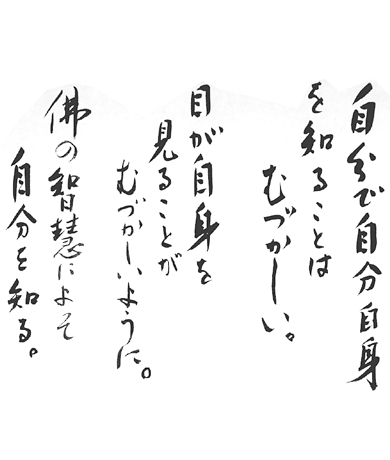 自分で自分自身
を知ることは
むづかしい。
目が自身を
見ることが
むづかしいように。
佛の智慧によって
自分を知る。